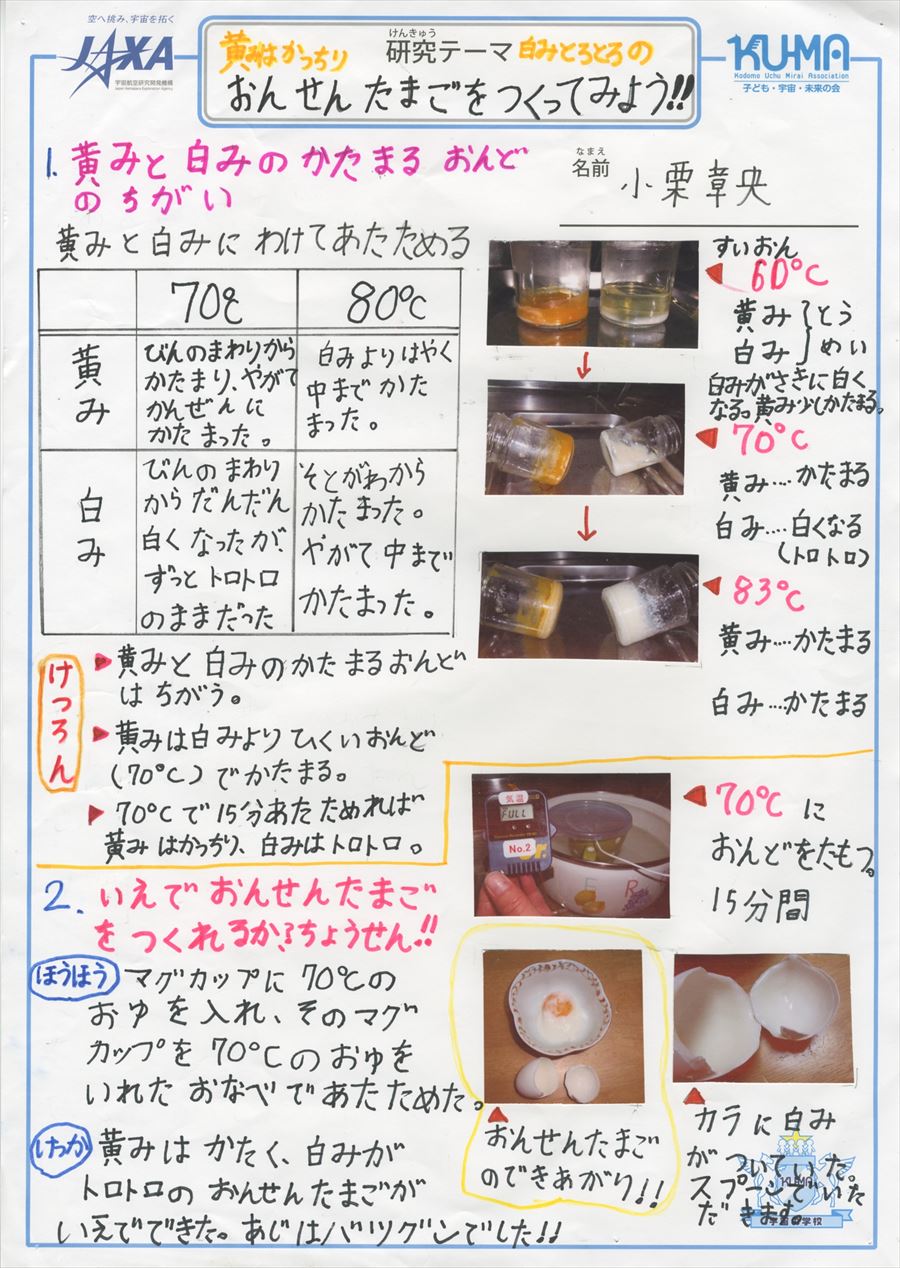 空へ挑み、宇宙を拓く
JAXA
宇宙航空研究開発機構
Japan Aerospace Exploration Agency
けんきゅう
黄みはかっちり 研究テーマ 白みとろとろの
おんせんたまごをつくってみよう!!
KU-MA
Kodomo Uchu Mirai Association
子ども・宇宙・未来の会
なまえ
名前 小栗章央
1. 黄みと白みのかたまるおんど
のちがい
黄みと白みにわけてあたためる
70℃ 80℃
黄み
びんのまわりから
かたまり、やがて
かんぜんに
かたまった。
白みよりはやく
中までかた
まった。
白み
びんのまわり
からだんだん
白くなったが、
ずっとトロトロ
のままだった
そとがわから
かたまった。
やがて中まで
かたまった。
すいおん
60℃
黄み
白み
とう
めい
白みがさきに白く
なる。黄み少しかたまる。
70℃
黄み…かたまる
白み…白くなる
(トロトロ)
83℃
黄み…かたまる
白み…かたまる
けつろん
黄みと白みのかたまるおんど
はちがう。
黄みは白みよりひくいおんど
(70℃)でかたまる。
70℃で15分あたためれば
黄みはかっちり、白みはトロトロ。
気温
FULL
No.2
70℃に
おんどをたもつ。
15分間
2. いえでおんせんたまご
をつくれるか?ちょうせん!!
ほうほう
マグカップに70℃の
おゆを入れ、そのマグ
カップを70℃のおゆを
いれたおなべであたためた。
けっか
黄みはかたく、白みが
トロトロのおんせんたまごが
いえでできた。あじはバツグンでした!!
おんせんたまご
のできあがり!!
カラに白み
がついていた。
スプーンでいた
だきます。
KUMA
宇宙の学校